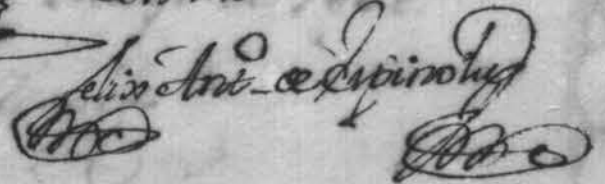 Felix Antº de Espinosa